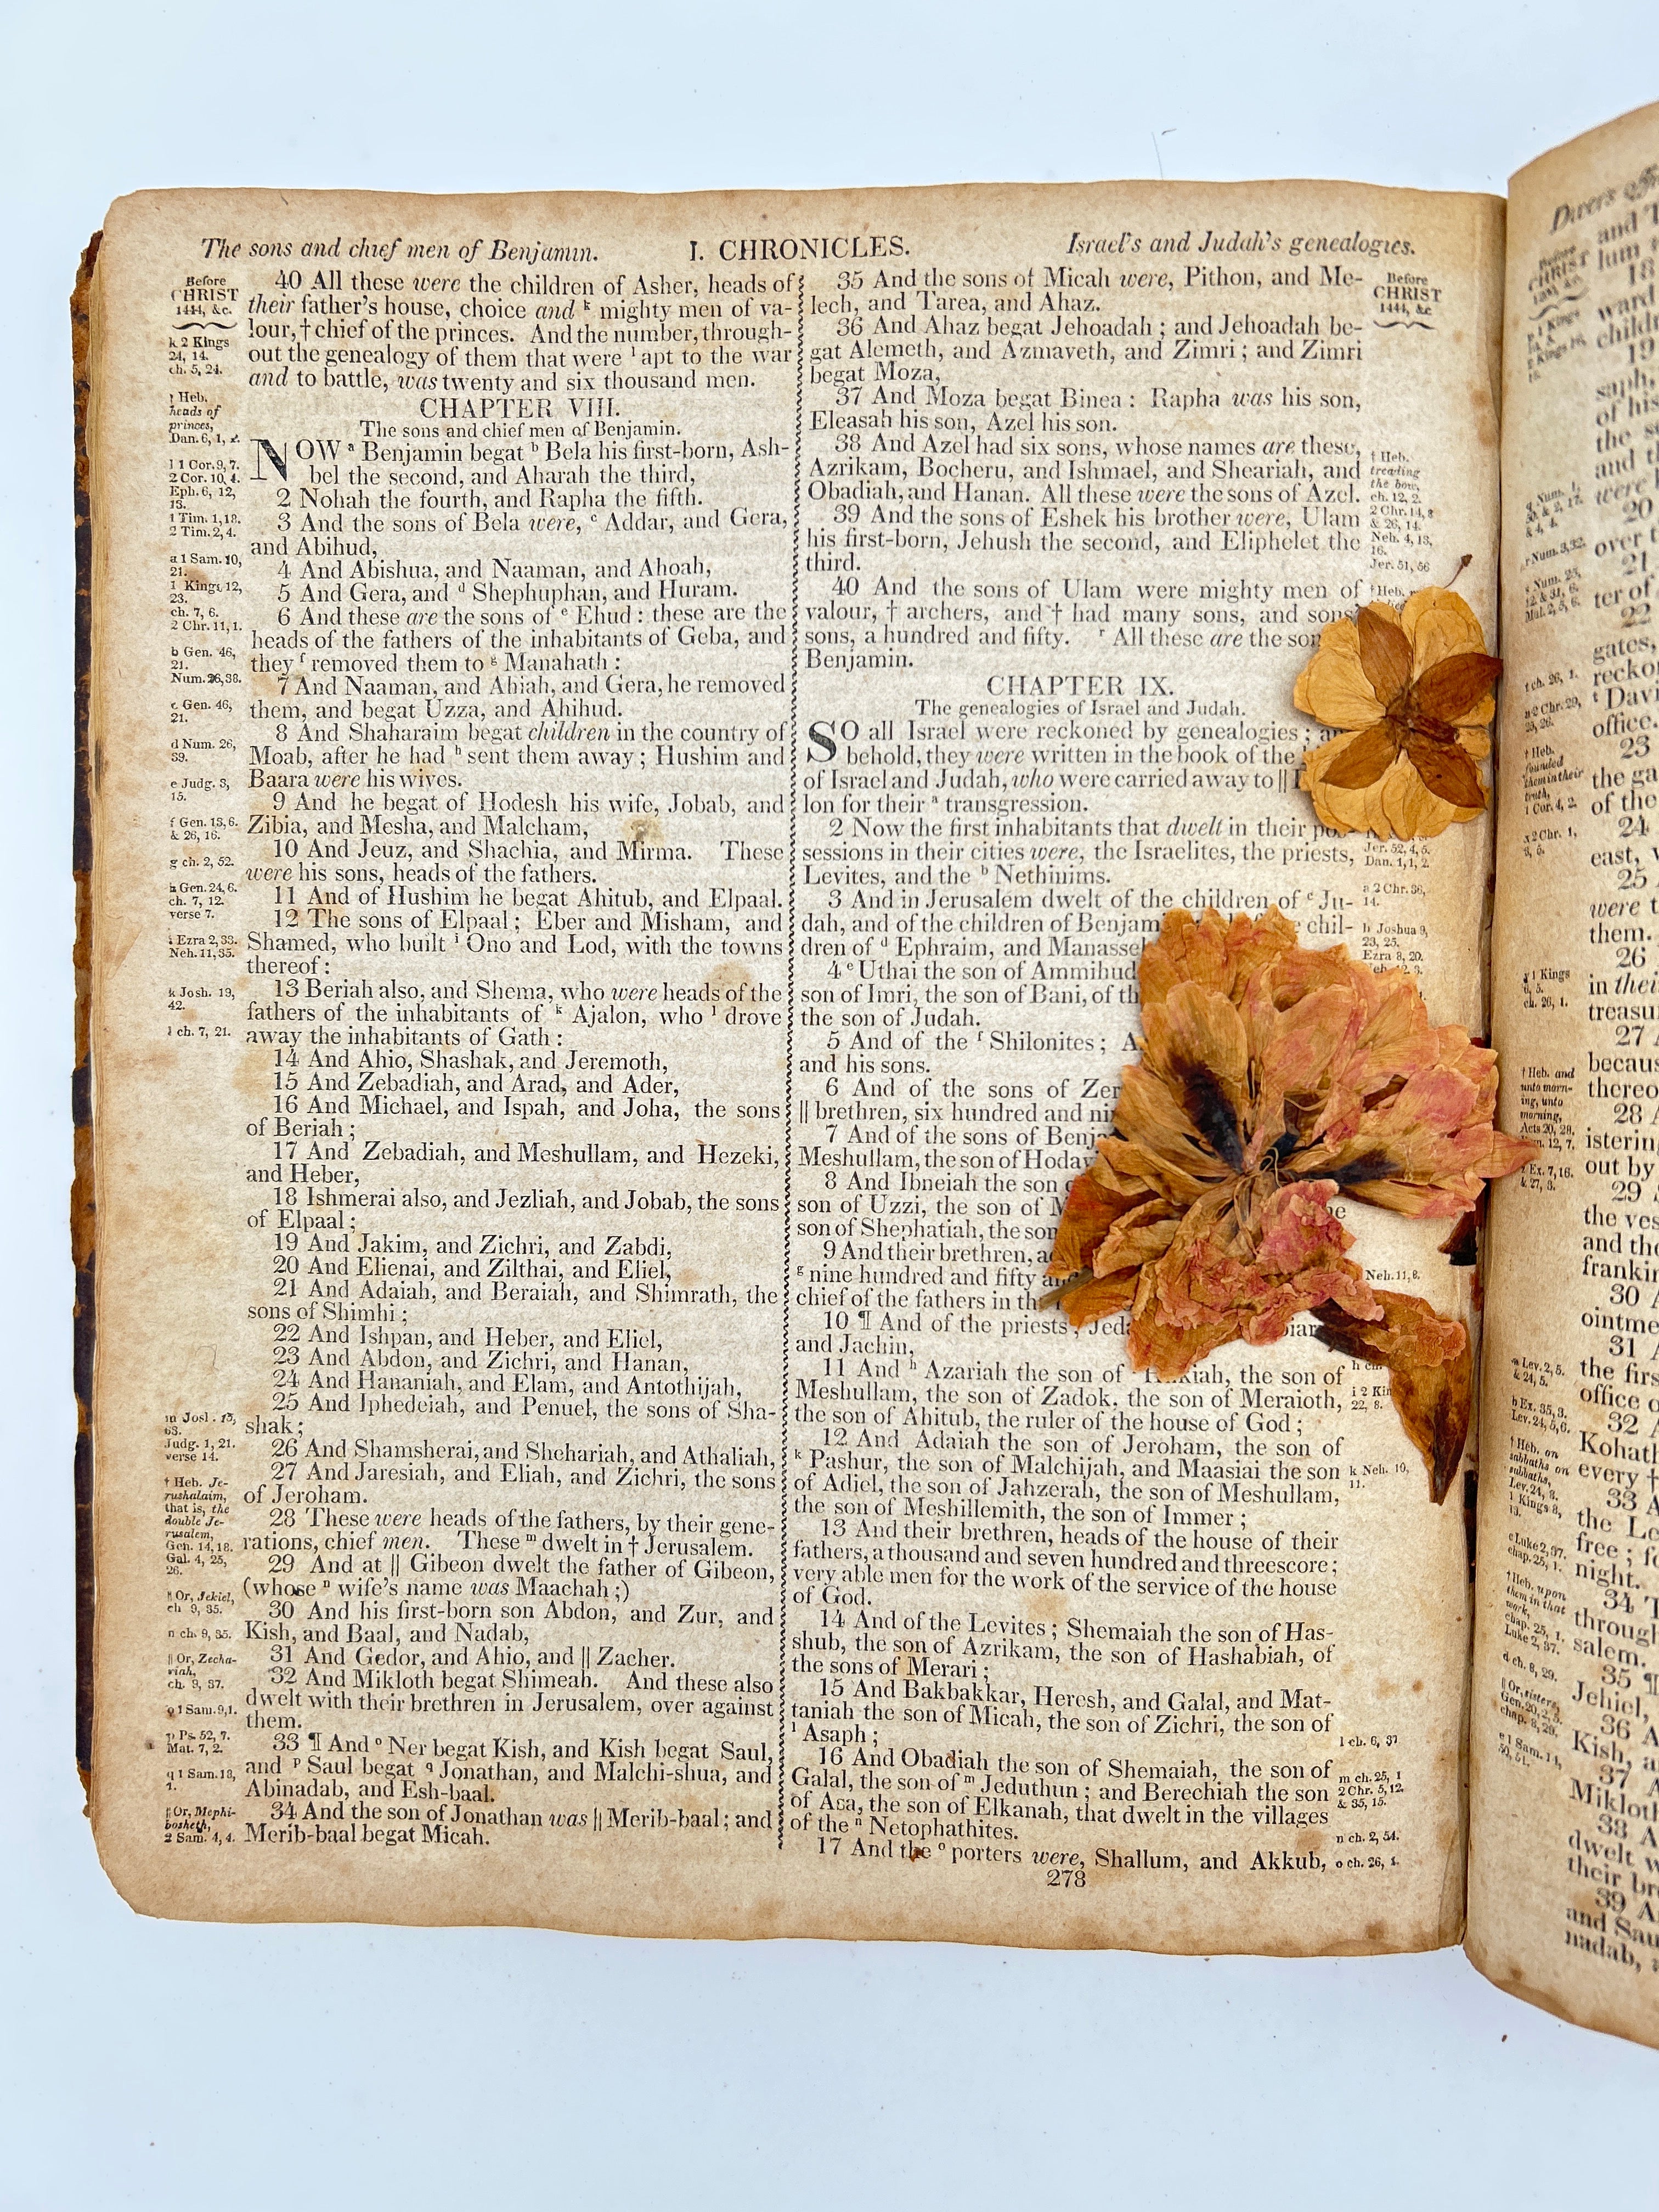 The sons and chief men of Benjamin. I. CHRONICLES. Israel's and Judah's genealogies.
Before
CHRIST
1444, &c.
k 2 Kings
24, 14.
ch. 5, 24.
† Heb.
heads of
princes,
Dan. 6, 1, 2.
l 1 Cor. 9, 7.
2 Cor. 10, 4.
Eph. 6, 12,
13.
1 Tim. 1, 18.
2 Tim. 2, 4.
a 1 Sam. 10,
21.
1 Kings 12,
23.
ch. 7, 6.
2 Chr. 11, 1.
b Gen. 46,
21.
Num. 26, 38.
c Gen. 46,
21.
d Num. 26,
39.
e Judg. 3,
15.
f Gen. 13, 6.
& 26, 16.
g ch. 2, 52.
h Gen. 24, 6.
ch. 7, 12.
verse 7.
i Ezra 2, 33.
Neh. 11, 35.
k Josh. 19,
42.
l ch. 7, 21.
m Josh. 15,
63.
Judg. 1, 21.
verse 14.
† Heb. Je-
rushalaim,
that is, the
double Je-
rusalem,
Gen. 14, 18.
Gal. 4, 25,
26.
|| Or, Jehiel,
ch 9, 35.
n ch. 9, 35.
|| Or, Zecha-
riah,
ch. 9, 37.
o 1 Sam. 9, 1.
p Ps. 52, 7.
Mat. 7, 2.
q 1 Sam. 18,
1.
|| Or, Mephi-
bosheth,
2 Sam. 4, 4.
40 All these were the children of Asher, heads of
their father's house, choice and k mighty men of va-
lour, † chief of the princes. And the number, through-
out the genealogy of them that were l apt to the war
and to battle, was twenty and six thousand men.
CHAPTER VIII.
The sons and chief men of Benjamin.
NOW a Benjamin begat b Bela his first-born, Ash-
bel the second, and Aharah the third,
2 Nohah the fourth, and Rapha the fifth.
3 And the sons of Bela were, c Addar, and Gera,
and Abihud,
4 And Abishua, and Naaman, and Ahoah,
5 And Gera, and d Shephuphan, and Huram.
6 And these are the sons of e Ehud : these are the
heads of the fathers of the inhabitants of Geba, and
they f removed them to g Manahath :
7 And Naaman, and Ahiah, and Gera, he removed
them, and begat Uzza, and Ahihud.
8 And Shaharaim begat children in the country of
Moab, after he had h sent them away ; Hushim and
Baara were his wives.
9 And he begat of Hodesh his wife, Jobab, and
Zibia, and Mesha, and Malcham,
10 And Jeuz, and Shachia, and Mirma. These
were his sons, heads of the fathers.
11 And of Hushim he begat Ahitub, and Elpaal.
12 The sons of Elpaal ; Eber and Misham, and
Shamed, who built i Ono and Lod, with the towns
thereof :
13 Beriah also, and Shema, who were heads of the
fathers of the inhabitants of k Ajalon, who l drove
away the inhabitants of Gath :
14 And Ahio, Shashak, and Jeremoth,
15 And Zebadiah, and Arad, and Ader,
16 And Michael, and Ispah, and Joha, the sons
of Beriah ;
17 And Zebadiah, and Meshullam, and Hezeki,
and Heber,
18 Ishmerai also, and Jezliah, and Jobab, the sons
of Elpaal ;
19 And Jakim, and Zichri, and Zabdi,
20 And Elienai, and Zilthai, and Eliel,
21 And Adaiah, and Beraiah, and Shimrath, the
sons of Shimhi ;
22 And Ishpan, and Heber, and Eliel,
23 And Abdon, and Zichri, and Hanan,
24 And Hananiah, and Elam, and Antothijah,
25 And Iphedeiah, and Penuel, the sons of Sha-
shak ;
26 And Shamsherai, and Shehariah, and Athaliah,
27 And Jaresiah, and Eliah, and Zichri, the sons
of Jeroham.
28 These were heads of the fathers, by their gene-
rations, chief men. These m dwelt in † Jerusalem.
29 And at || Gibeon dwelt the father of Gibeon,
(whose n wife's name was Maachah ;)
30 And his first-born son Abdon, and Zur, and
Kish, and Baal, and Nadab,
31 And Gedor, and Ahio, and || Zacher.
32 And Mikloth begat Shimeah. And these also
dwelt with their brethren in Jerusalem, over against
them.
33 ¶ And o Ner begat Kish, and Kish begat Saul,
and p Saul begat q Jonathan, and Malchi-shua, and
Abinadab, and Esh-baal.
34 And the son of Jonathan was || Merib-baal ; and
Merib-baal begat Micah.
35 And the sons of Micah were, Pithon, and Me-
lech, and Tarea, and Ahaz.
36 And Ahaz begat Jehoadah ; and Jehoadah be-
gat Alemeth, and Azmaveth, and Zimri ; and Zimri
begat Moza,
37 And Moza begat Binea : Rapha was his son,
Eleasah his son, Azel his son.
38 And Azel had six sons, whose names are these,
Azrikam, Bocheru, and Ishmael, and Sheariah, and
Obadiah, and Hanan. All these were the sons of Azel.
39 And the sons of Eshek his brother were, Ulam
his first-born, Jehush the second, and Eliphelet the
third.
40 And the sons of Ulam were mighty men of
valour, † archers, and † had many sons, and sons'
sons, a hundred and fifty. r All these are the
Benjamin.
CHAPTER IX.
The genealogies of Israel and Judah.
SO all Israel were reckoned by genealogies ;
behold, they were written in the book of the
of Israel and Judah, who were carried away to ||
lon for their a transgression.
2 Now the first inhabitants that dwelt in their pos-
sessions in their cities were, the Israelites, the priests,
Levites, and the b Nethinims.
3 And in Jerusalem dwelt of the children of c Ju-
dah, and of the children of Benjam chil-
dren of d Ephraim, and Manasseh
4 e Uthai the son of Ammihud
son of Imri, the son of Bani, of th
the son of Judah.
5 And of the f Shilonites ; A
and his sons.
6 And of the sons of Zer
|| brethren, six hundred and nin
7 And of the sons of Benja
Meshullam, the son of Hodav
8 And Ibneiah the son
son of Uzzi, the son of M
son of Shephatiah, the son
9 And their brethren, ac
g nine hundred and fifty and
chief of the fathers in th
10 ¶ And of the priests ; Jeda
and Jachin,
11 And h Azariah the son of kiah, the son of
Meshullam, the son of Zadok, the son of Meraioth,
the son of Ahitub, the ruler of the house of God ;
12 And Adaiah the son of Jeroham, the son of
k Pashur, the son of Malchijah, and Maasiai the son
of Adiel, the son of Jahzerah, the son of Meshullam,
the son of Meshillemith, the son of Immer ;
13 And their brethren, heads of the house of their
fathers, a thousand and seven hundred and threescore ;
very able men for the work of the service of the house
of God.
14 And of the Levites ; Shemaiah the son of Has-
shub, the son of Azrikam, the son of Hashabiah, of
the sons of Merari ;
15 And Bakbakkar, Heresh, and Galal, and Mat-
taniah the son of Micah, the son of Zichri, the son of
l Asaph ;
16 And Obadiah the son of Shemaiah, the son of
Galal, the son of m Jeduthun ; and Berechiah the son
of Asa, the son of Elkanah, that dwelt in the villages
of the n Netophathites.
17 And the o porters were, Shallum, and Akkub,
278
Before
CHRIST
1444, &c
† Heb.
treading
the bow,
ch. 12, 2.
2 Chr. 14, 8
& 26, 14.
Neh. 4, 13,
16.
Jer. 51, 56
† Heb.
Jer. 52, 4, 5.
Dan. 1, 1, 2.
a 2 Chr. 36,
14.
b Joshua 9,
23, 25.
Ezra 8, 20.
Neh. 11, 8.
i 2 Kin
22, 8.
k Neh. 10,
11.
l ch. 6, 37
m ch. 25, 1
2 Chr. 5, 12.
& 35, 15.
n ch. 2, 54.
o ch. 26, 1.
Divers
and T
lum
18
ward
childr
19
saph,
of his
the s
and th
were
20
over t
21
ter of
22
gates,
recko
t Davi
office.
23
the ga
of the
24
east,
25
were t
them.
26
in thei
treasu
27
becaus
thereo
28
istering
out by
29
the ves
and the
frankin
30
ointme
31
the firs
office o
32
Kohath
every †
33
the Le
free ; fo
night.
34
through
salem.
35 ¶
Jehiel,
36
Kish, a
37
Mikloth
38
dwelt w
their br
39
and Sau
nadab,